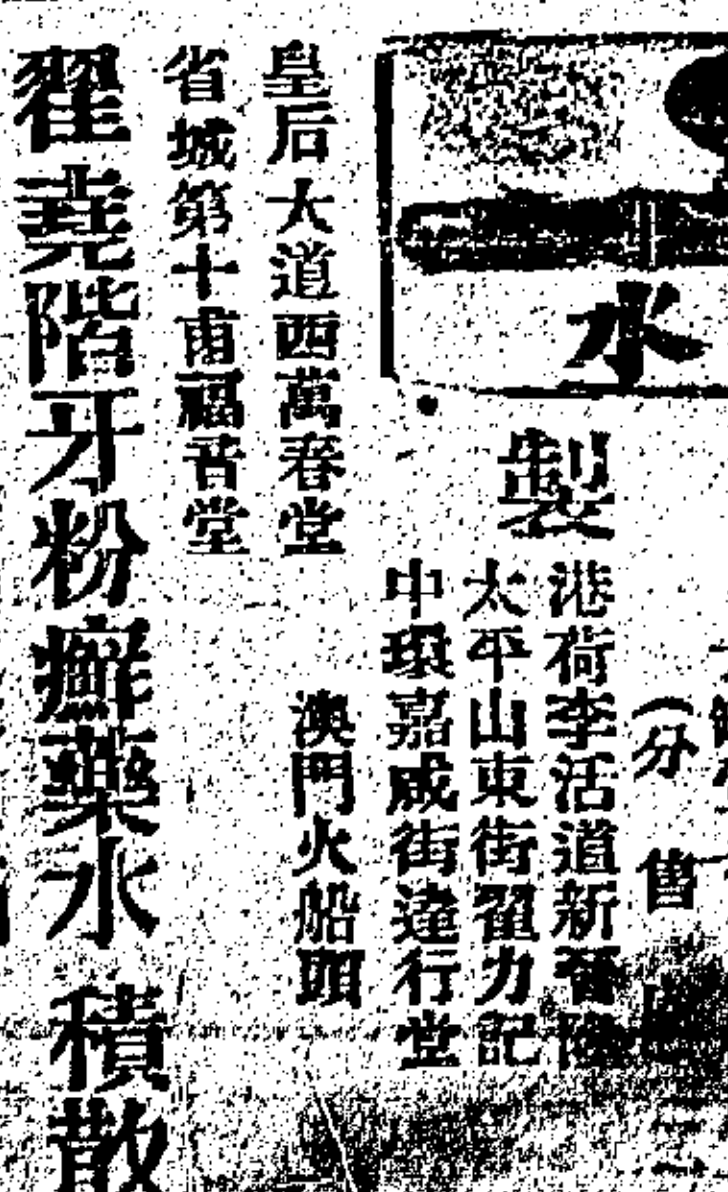 水
製
(分售
港荷李活道新
太平山東街翟力記
中環嘉咸街達行堂
澳門火船頭
皇后大道西萬春堂
省城第十甫福音堂
翟堯階牙粉癬藥水 積散